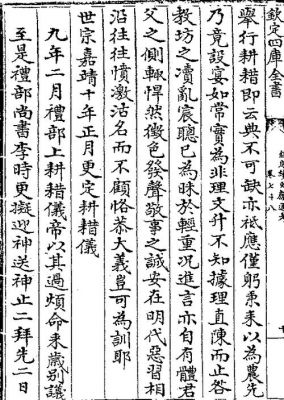 欽定四庫全書
舉行耕耤即云典不可缺亦祗應僅躬秉耒以為農先
乃竟設宴如常實為非理文升不知據理直陳而止咎
教坊之瀆亂宸聰已為昧於輕重況進言亦自有體君
父之側輒悍然徵色發聲敬事之誠安在明代惡習相
沿往往憤激沽名而不顧恪恭大義豈可為訓耶
世宗嘉靖十年正月更定耕耤儀
九年二月禮部上耕耤儀帝以其過煩命來歲別議
至是禮部尚書李時更擬迎神送神止二拜先二日